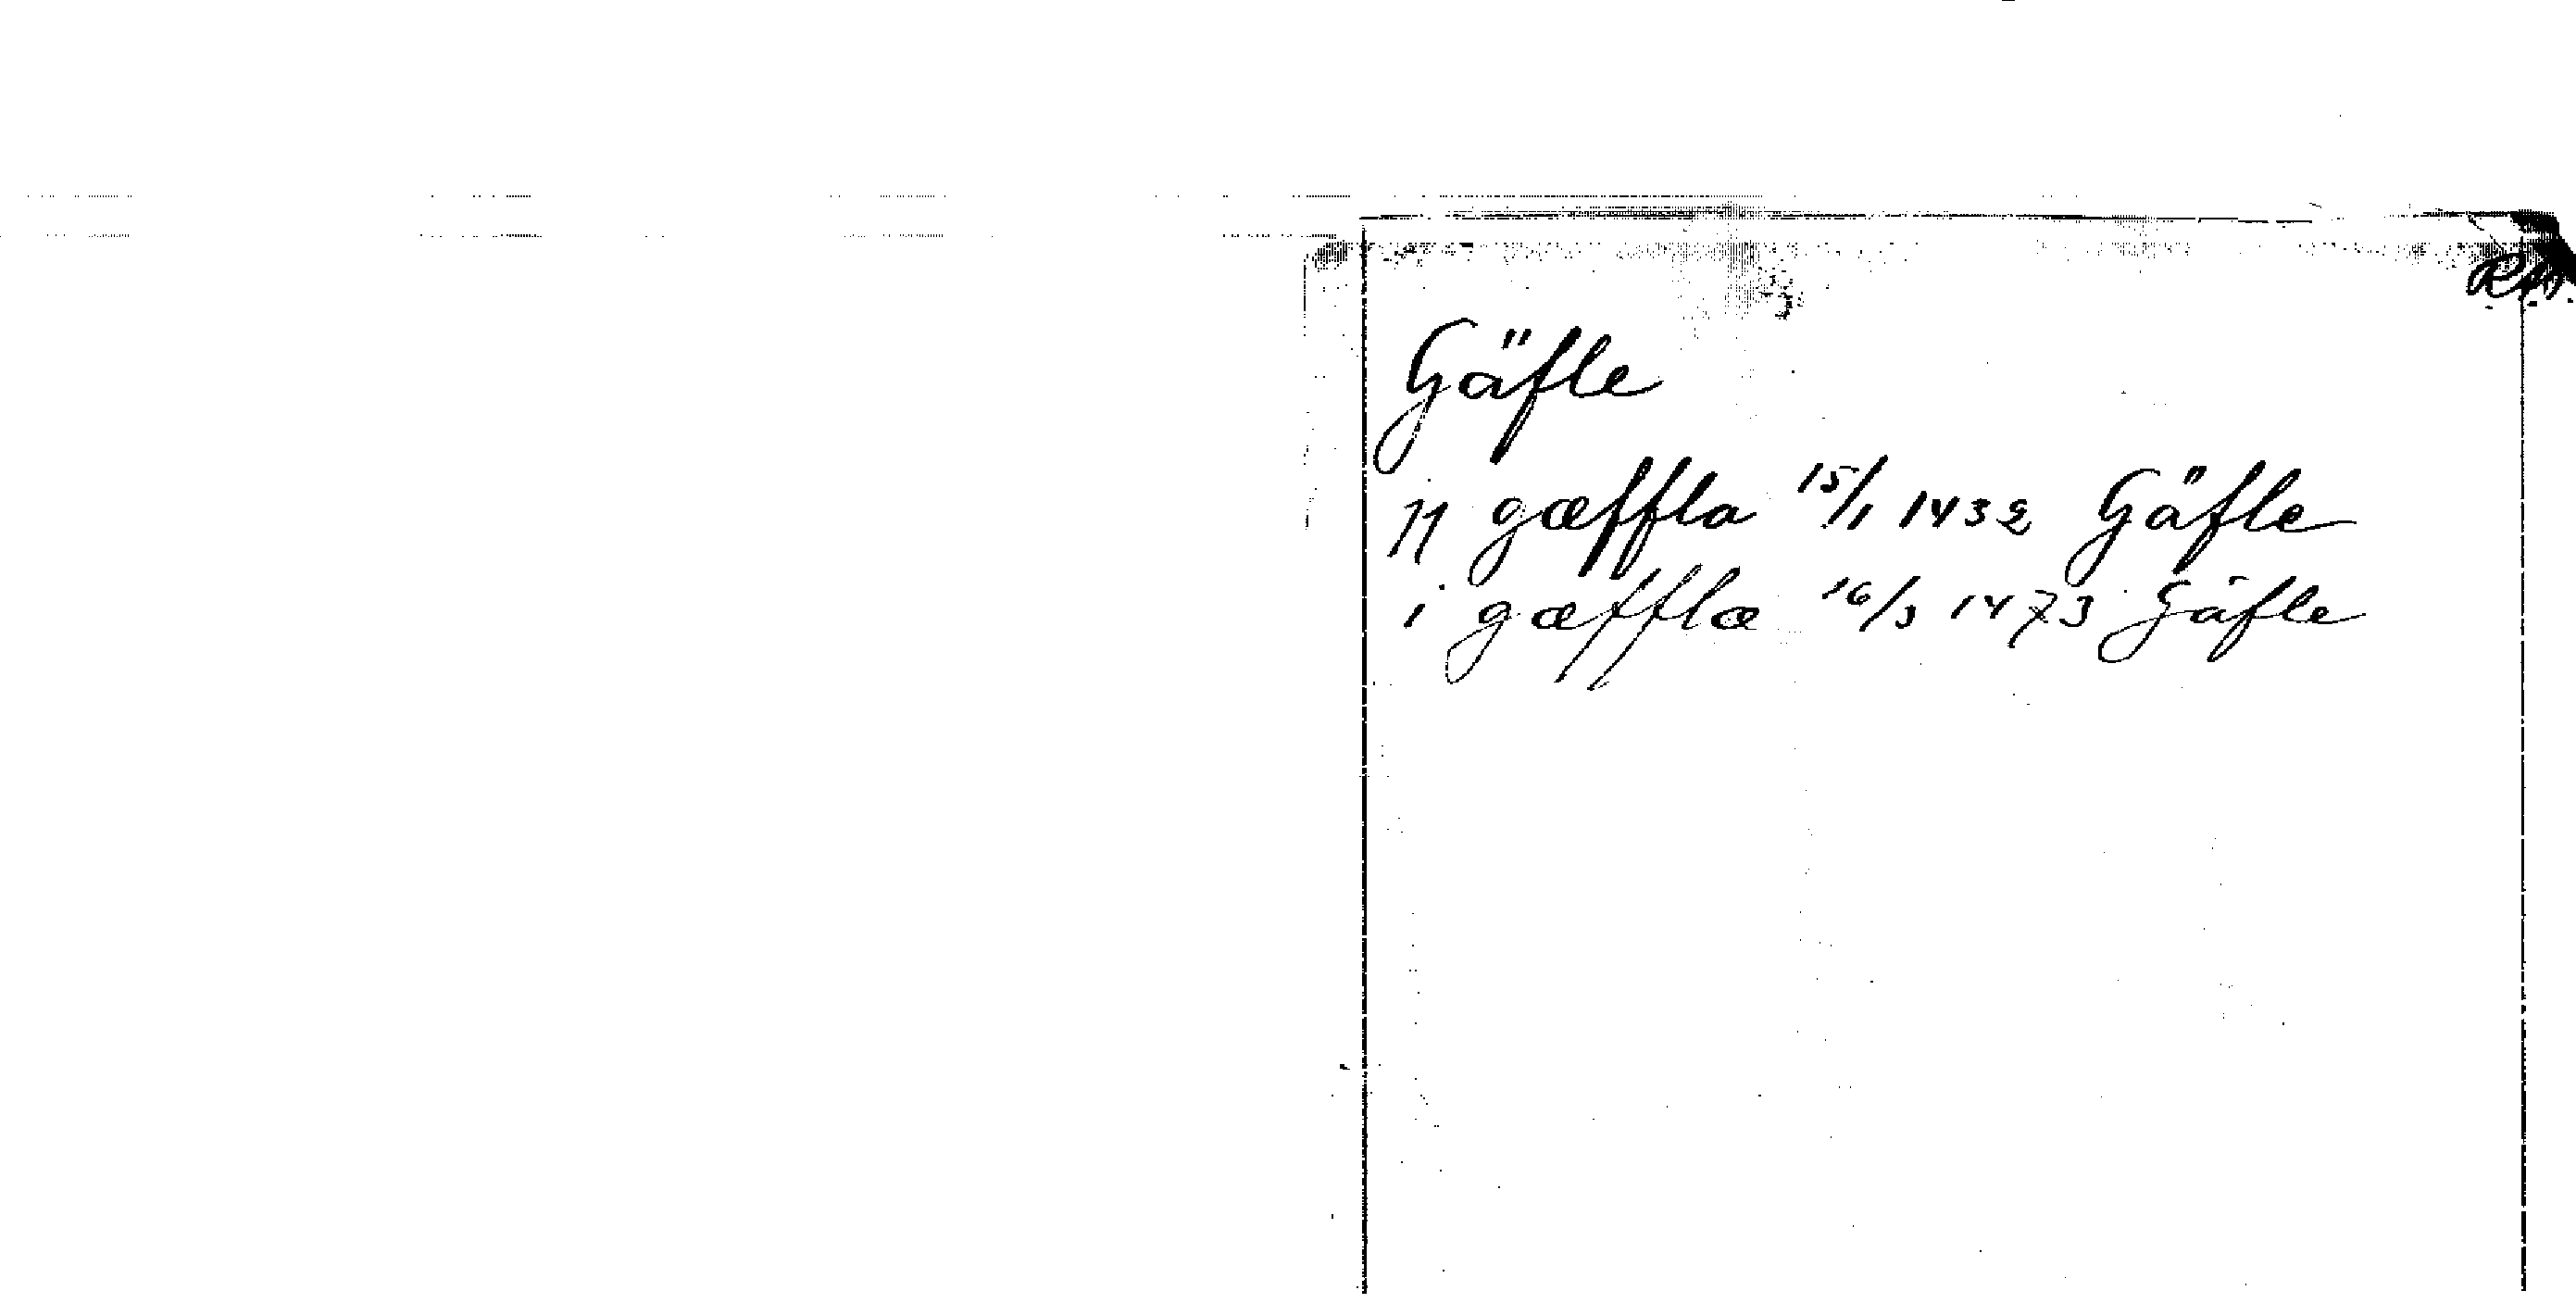 RA.
Gäfle
jj gæffla 15/1 1432 Gäfle
i gæfflæ 16/3 1473 Gäfle